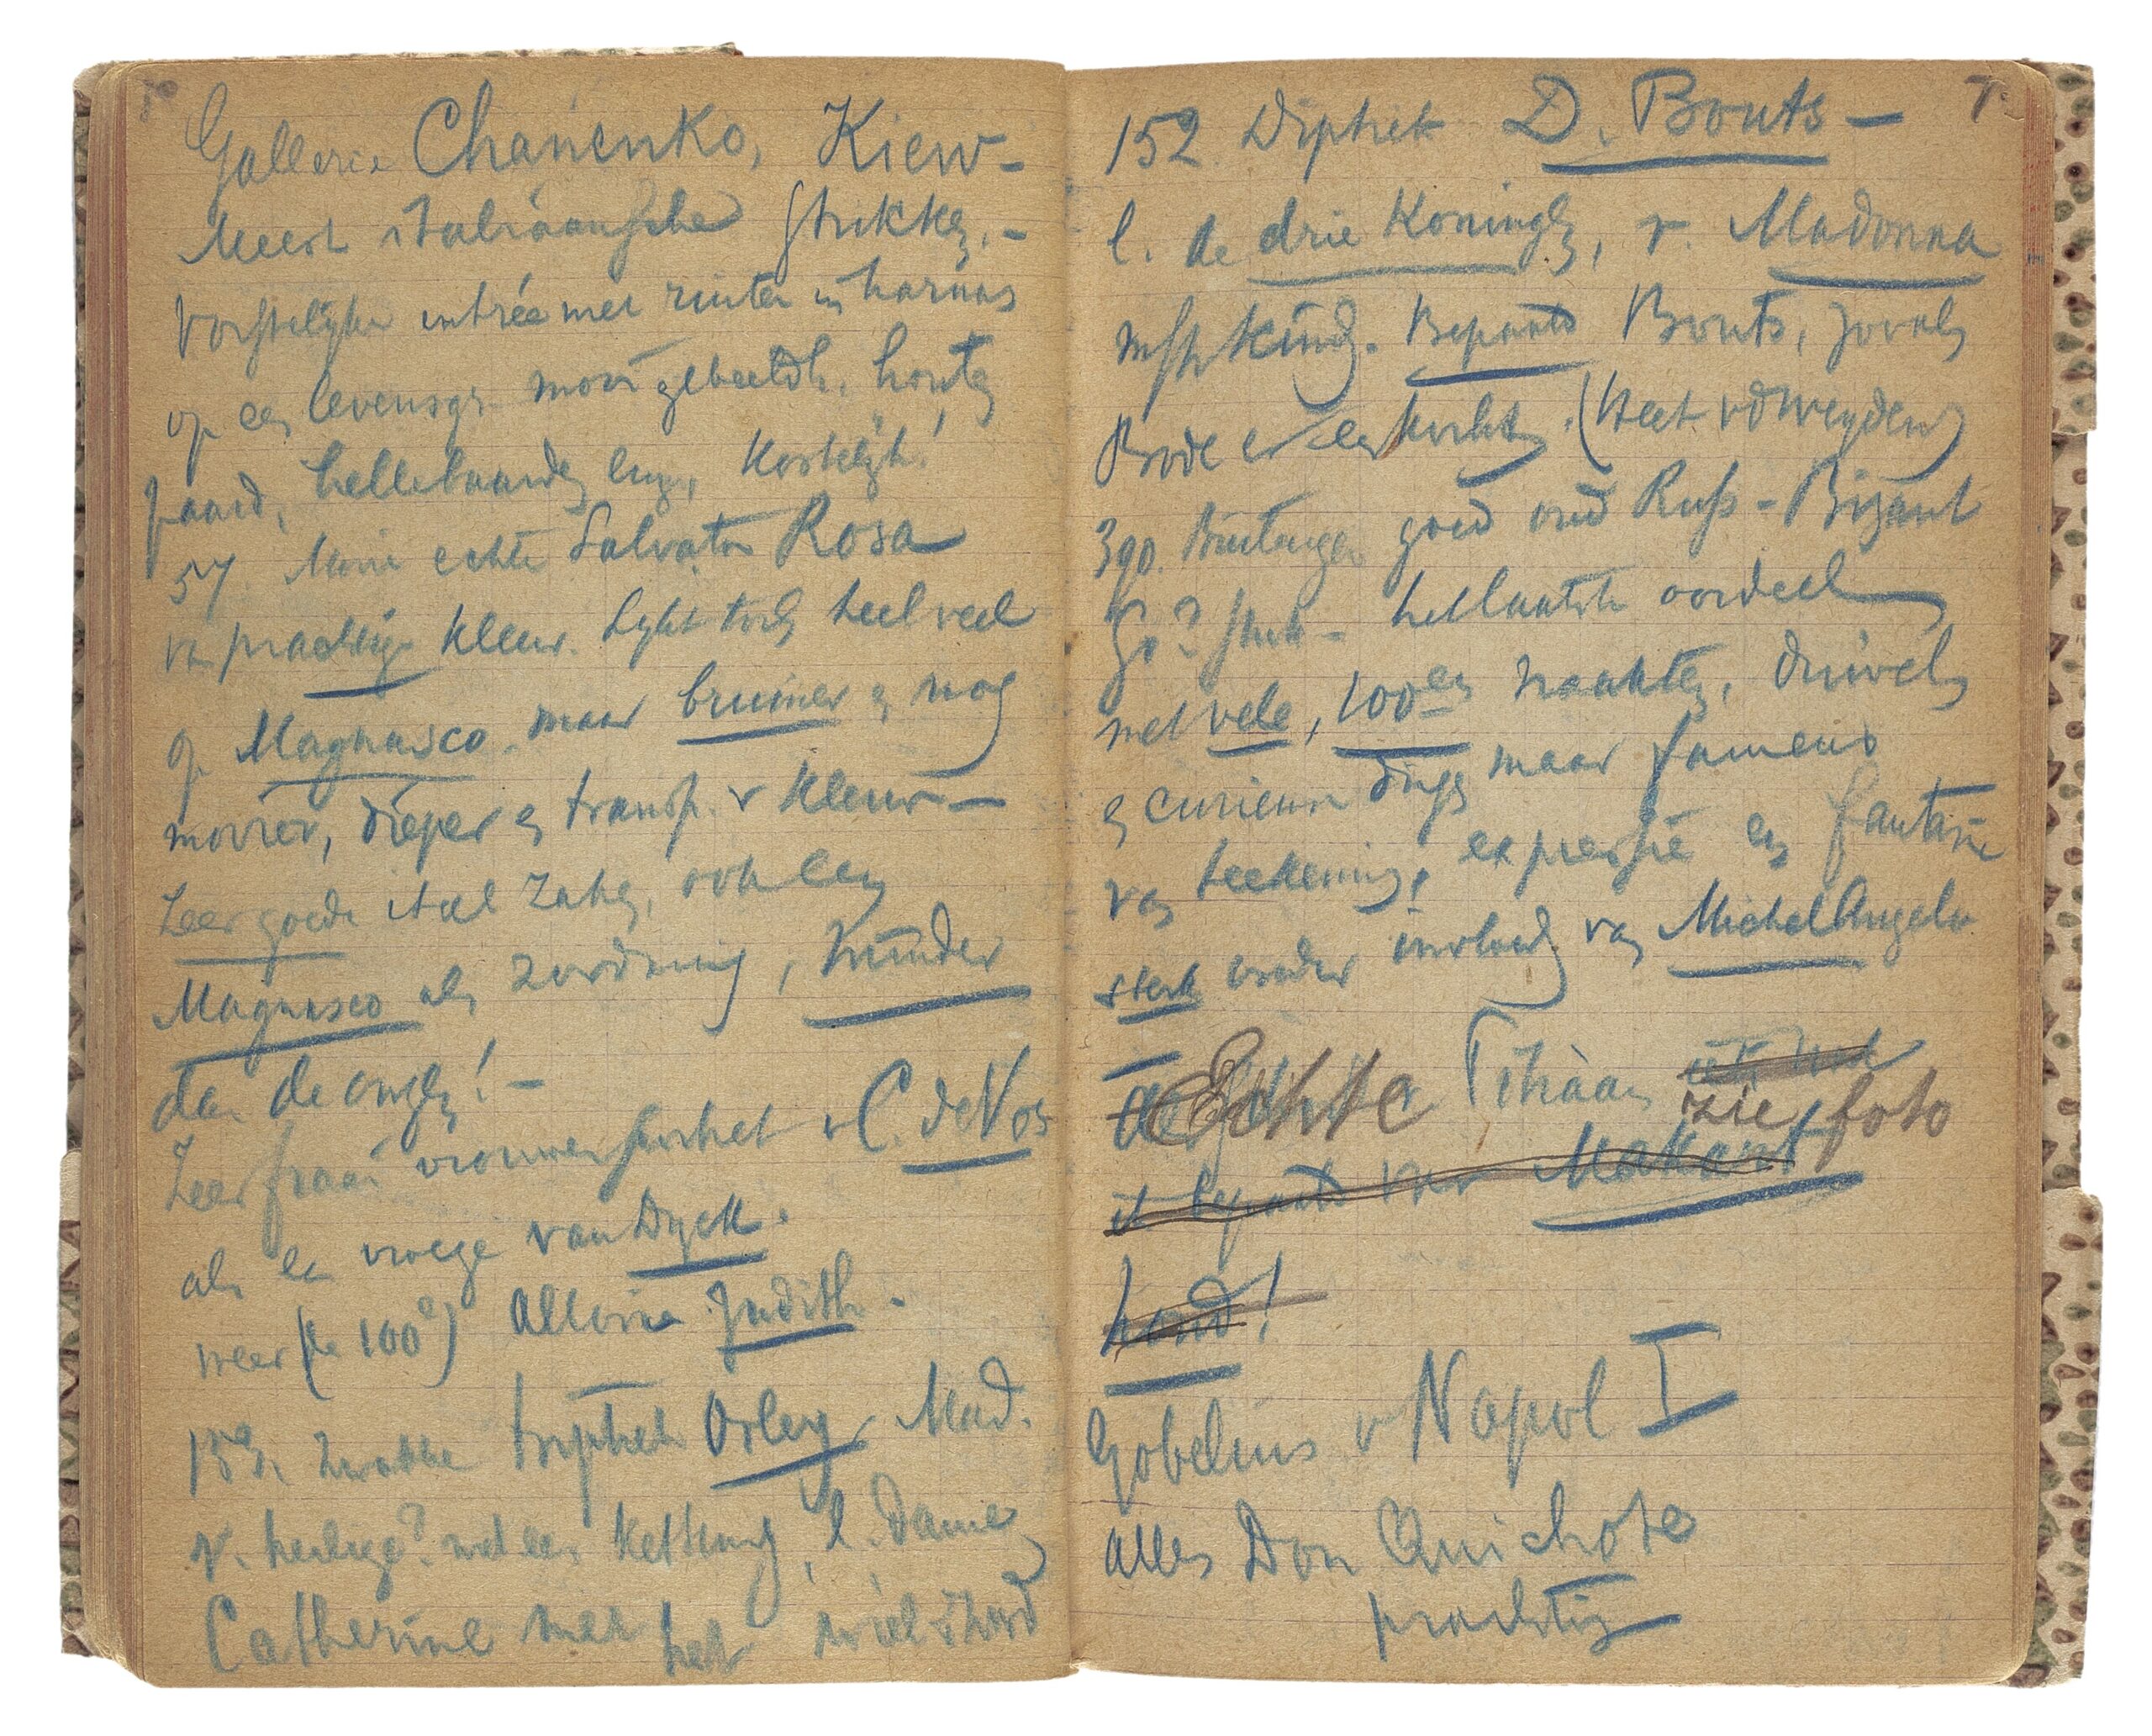 Gallerie Chanenko, Kiew -
Meest italiaansche stukken. -
Vorstelijke entrée met ruiter in harnas
op een levensgr. mooi gebeeldh. houten
paard, hellebaarden enz., kostelijk!
57. Mooie echte Salvator Rosa
van prachtige kleur. Lijkt toch heel veel
op Magnasco. maar bruiner en nog
mooier, dieper en transp. v kleur —
Zeer goede ital zaken, ook een
Magnasco als zoodanig, minder
dan de onzen! -
Zeer fraai vrouwenportret v C. de Vos
als een vroege van Dyck.
weer (de 100e) Allorie Judith -
zwakke triptiek Orley Mad.
r. heilige? met een ketting, l. Dame
Catherine met het wiel & zwaard
7
152. Diptiek D. Bouts —
l. de drie Koningen, r. Madonna
m/h kind. Bepaald Bouts, zooals
Bode er een kocht. (Heet vd Weyden)
390. Buitengew goed oud Russ-Bizant
stuk - het laatste oordeel
met vele, 100en naakten, duivels
en curieuse dingen maar fameus
van teekening, expressie en fantasie
sterk onder invloed van MichelAngelo
Echte Titiaan zie foto
is bepaald van Makart
hond!
Gobelins v Napol I
alles Don Quichote
prachtig